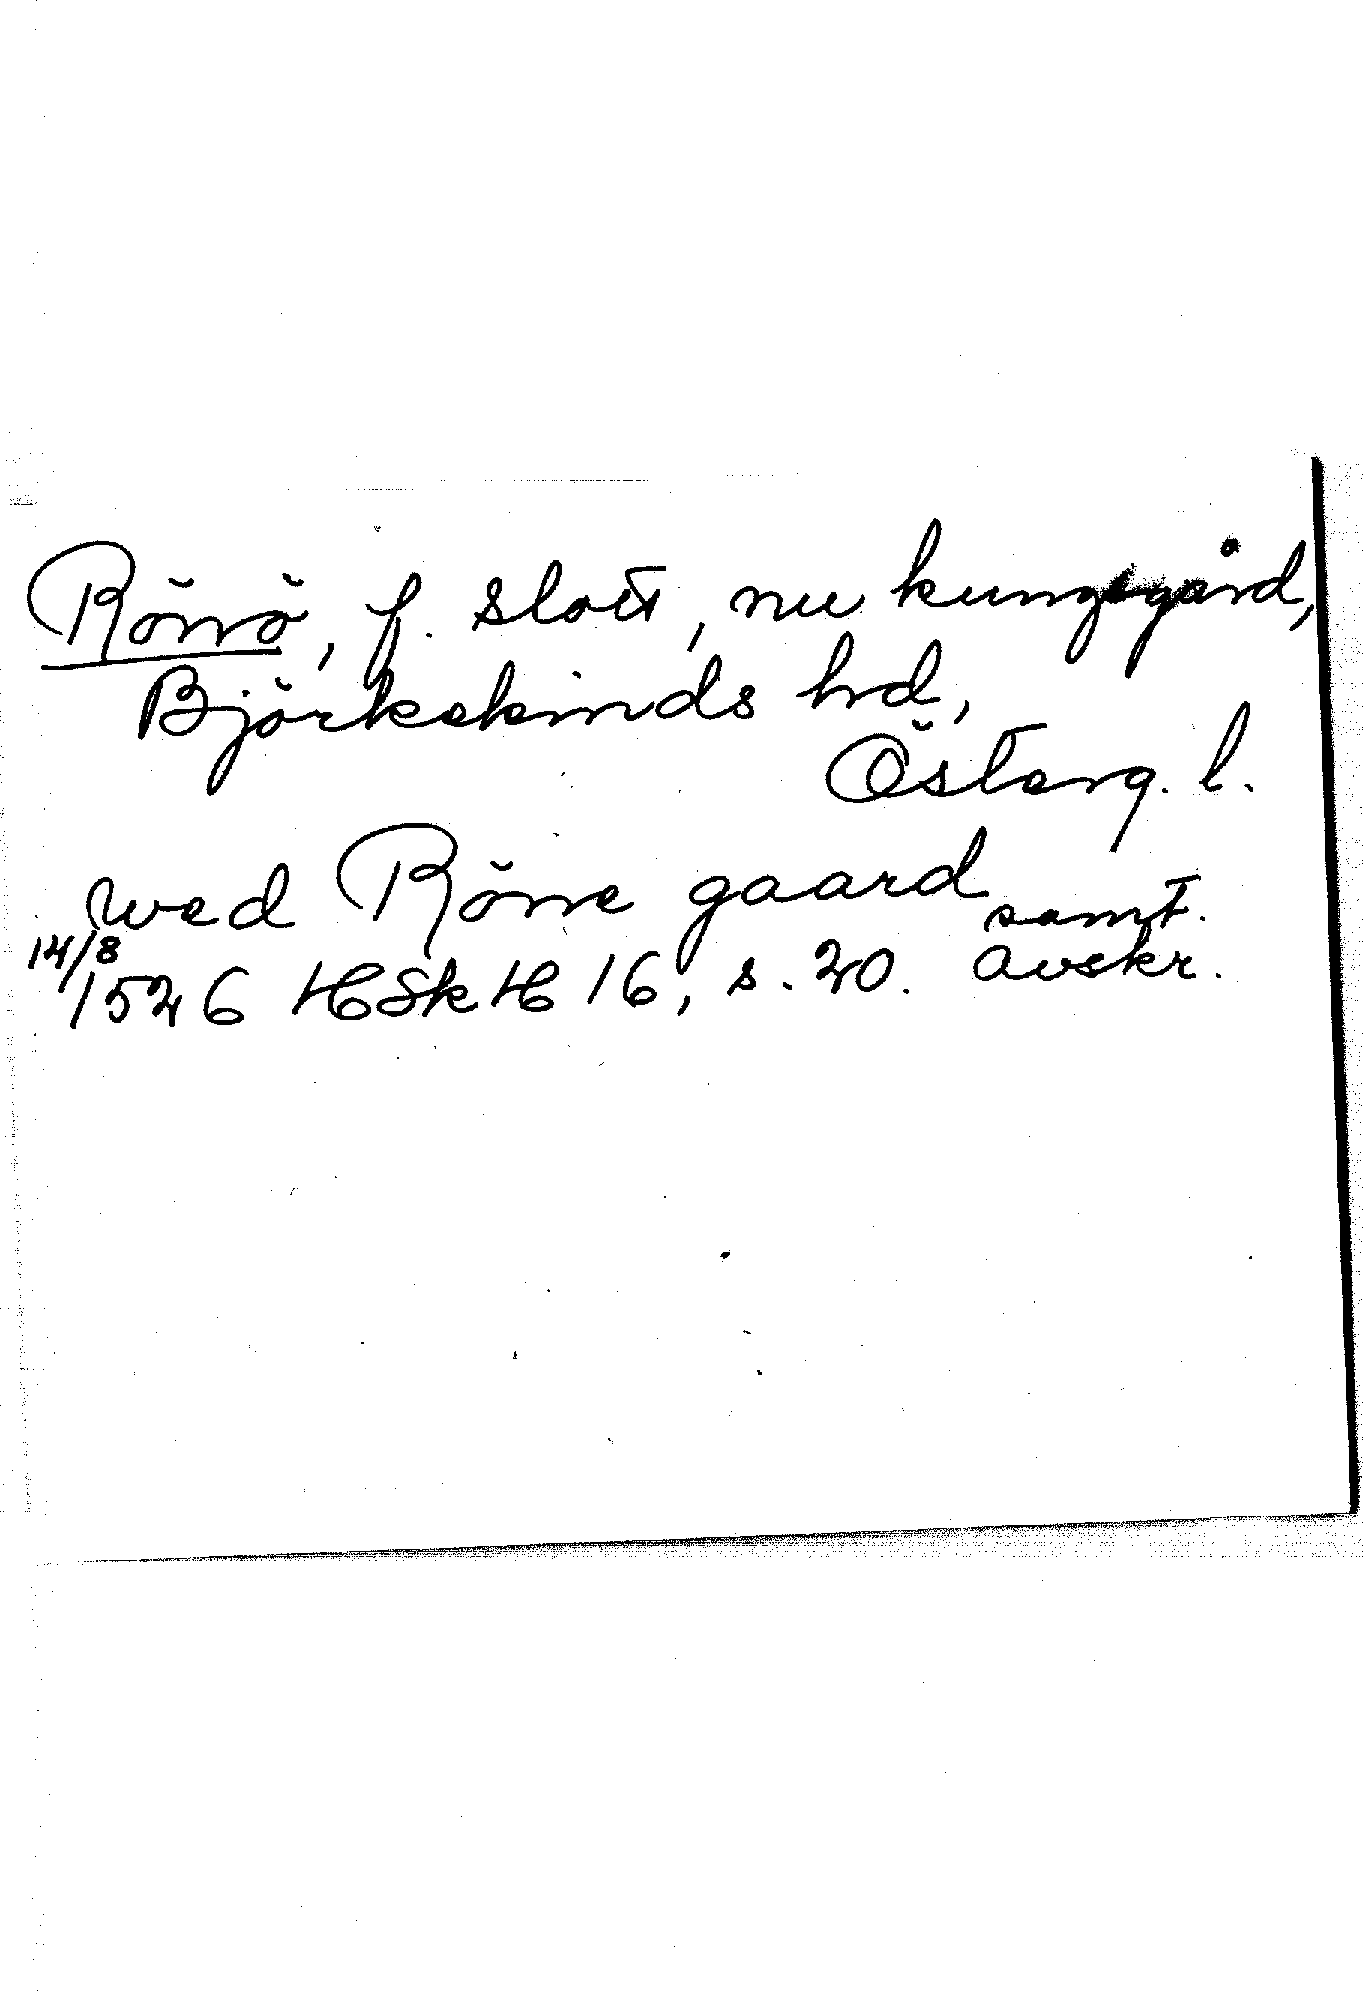 Rönö, f. slott, nu kungsgård,
Björkekinds hrd,
Österg. l.
wed Röne gaard samt.
14/8 1526 HSkH 16, s. 20. avskr.